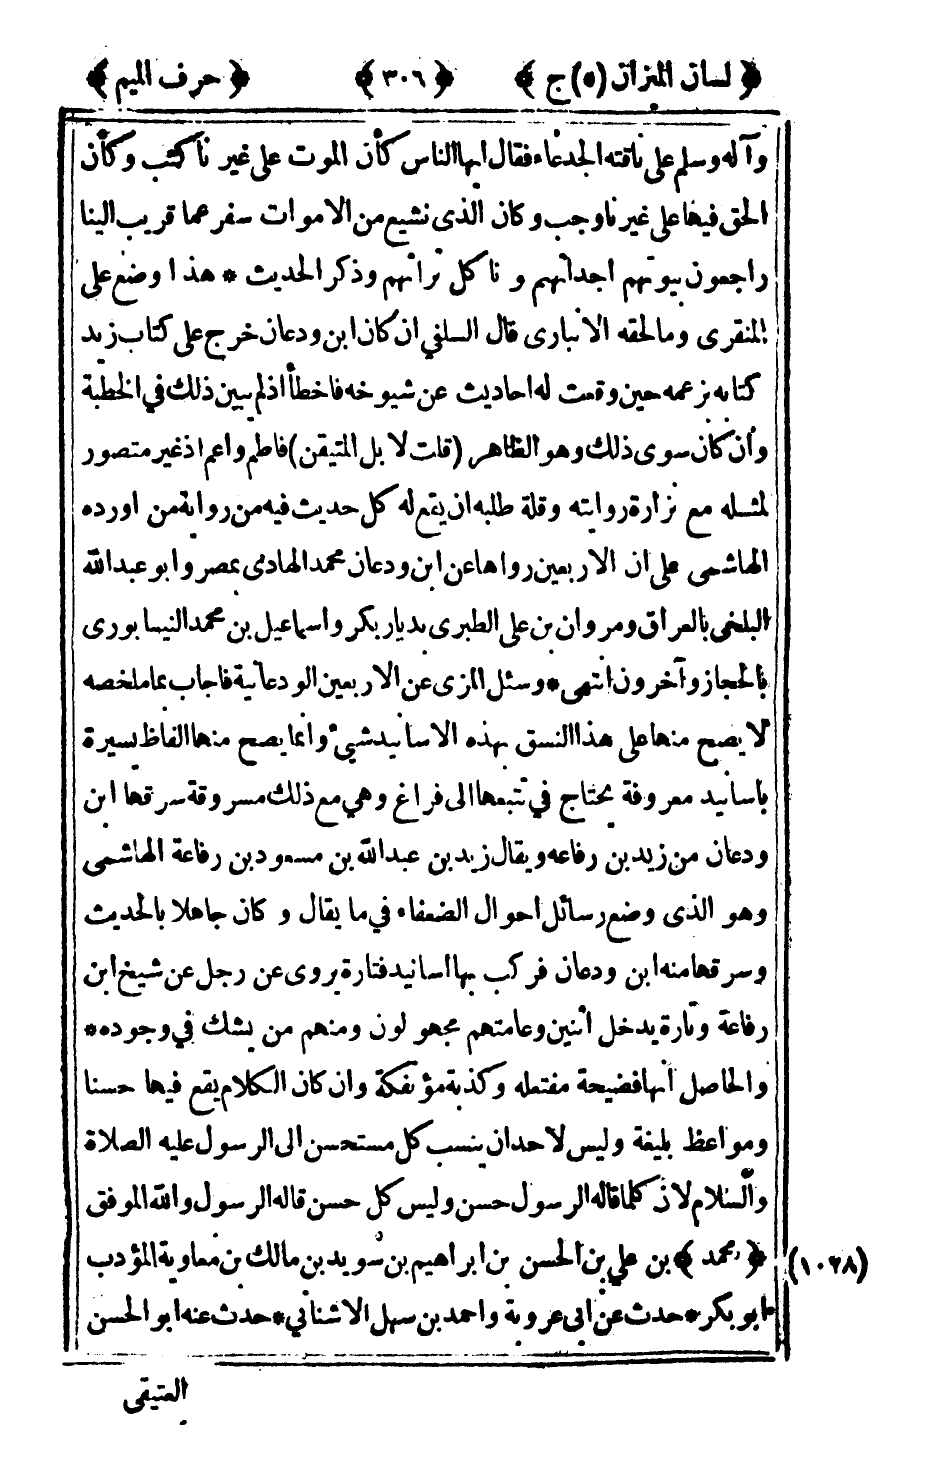 ﴿ لسان الميزان (٥) ج ﴾ ﴿ ٣٠٦ ﴾ ﴿ حرف الميم ﴾
وآله وسلم على ناقته الجدعاء فقال ايها الناس كأن الموت على غير نا كتب وكأن
الحق فيها على غير نا وجب وكان الذى نشيع من الاموات سفر عما قريب الينا
راجعون بيوتهم اجداثهم و نا كل تراثهم وذكر الحديث * هذا وضع على
المنقرى ومالحقه الانبارى قال السلفي ان كان ابن ودعان خرج على كتاب زيد
كتابه بزعمه حين وقعت له احاديث عن شيوخه فاخطأ اذلم يبين ذلك في الخطبة
وأن كان سوى ذلك وهو الظاهر (قلت لا بل المتيقن) فاطم واعم اذ غير متصور
لمثله مع نزارة روايته وقلة طلبه ان يقع له كل حديث فيه من رواية من اورده
الهاشمى على ان الاربعين رواها عن ابن ودعان محمد الهادى بمصر وابو عبد الله
البلخى بالعراق ومروان بن على الطبرى بديار بكر واسماعيل بن محمد النيسابورى
بالحجاز وآخرون انتهى * وسئل المزى عن الاربعين الودعانية فاجاب بما ملخصه
لا يصح منها على هذا النسق بهذه الاسانيد شيء وانما يصح منها الفاظ يسيرة
باسانيد معروفة يحتاج في تتبعها الى فراغ وهي مع ذلك مسروقة سرقها ابن
ودعان من زيد بن رفاعه ويقال زيد بن عبد الله بن مسعود بن رفاعة الهاشمى
وهو الذى وضع رسائل احوال الضعفاء في ما يقال و كان جاهلا بالحديث
وسرقها منه ابن ودعان فركب بها اسانيد فتارة يروى عن رجل عن شيخ ابن
رفاعة وتارة يدخل اثنين وعامتهم مجهولون ومنهم من يشك في وجوده *
والحاصل انها فضيحة مفتعله وكذبة مؤتفكة وان كان الكلام يقع فيها حسنا
ومواعظ بليغة وليس لاحد ان ينسب كل مستحسن الى الرسول عليه الصلاة
والسلام لان كلما قاله الرسول حسن وليس كل حسن قاله الرسول والله الموفق
(١٠٢٨) ﴿ محمد ﴾ بن علي بن الحسن بن ابراهيم بن سويد بن مالك بن معاوية المؤدب
ابو بكر * حدث عن ابى عروبة واحمد بن سهل الاشناني * حدث عنه ابو الحسن
العتيقى